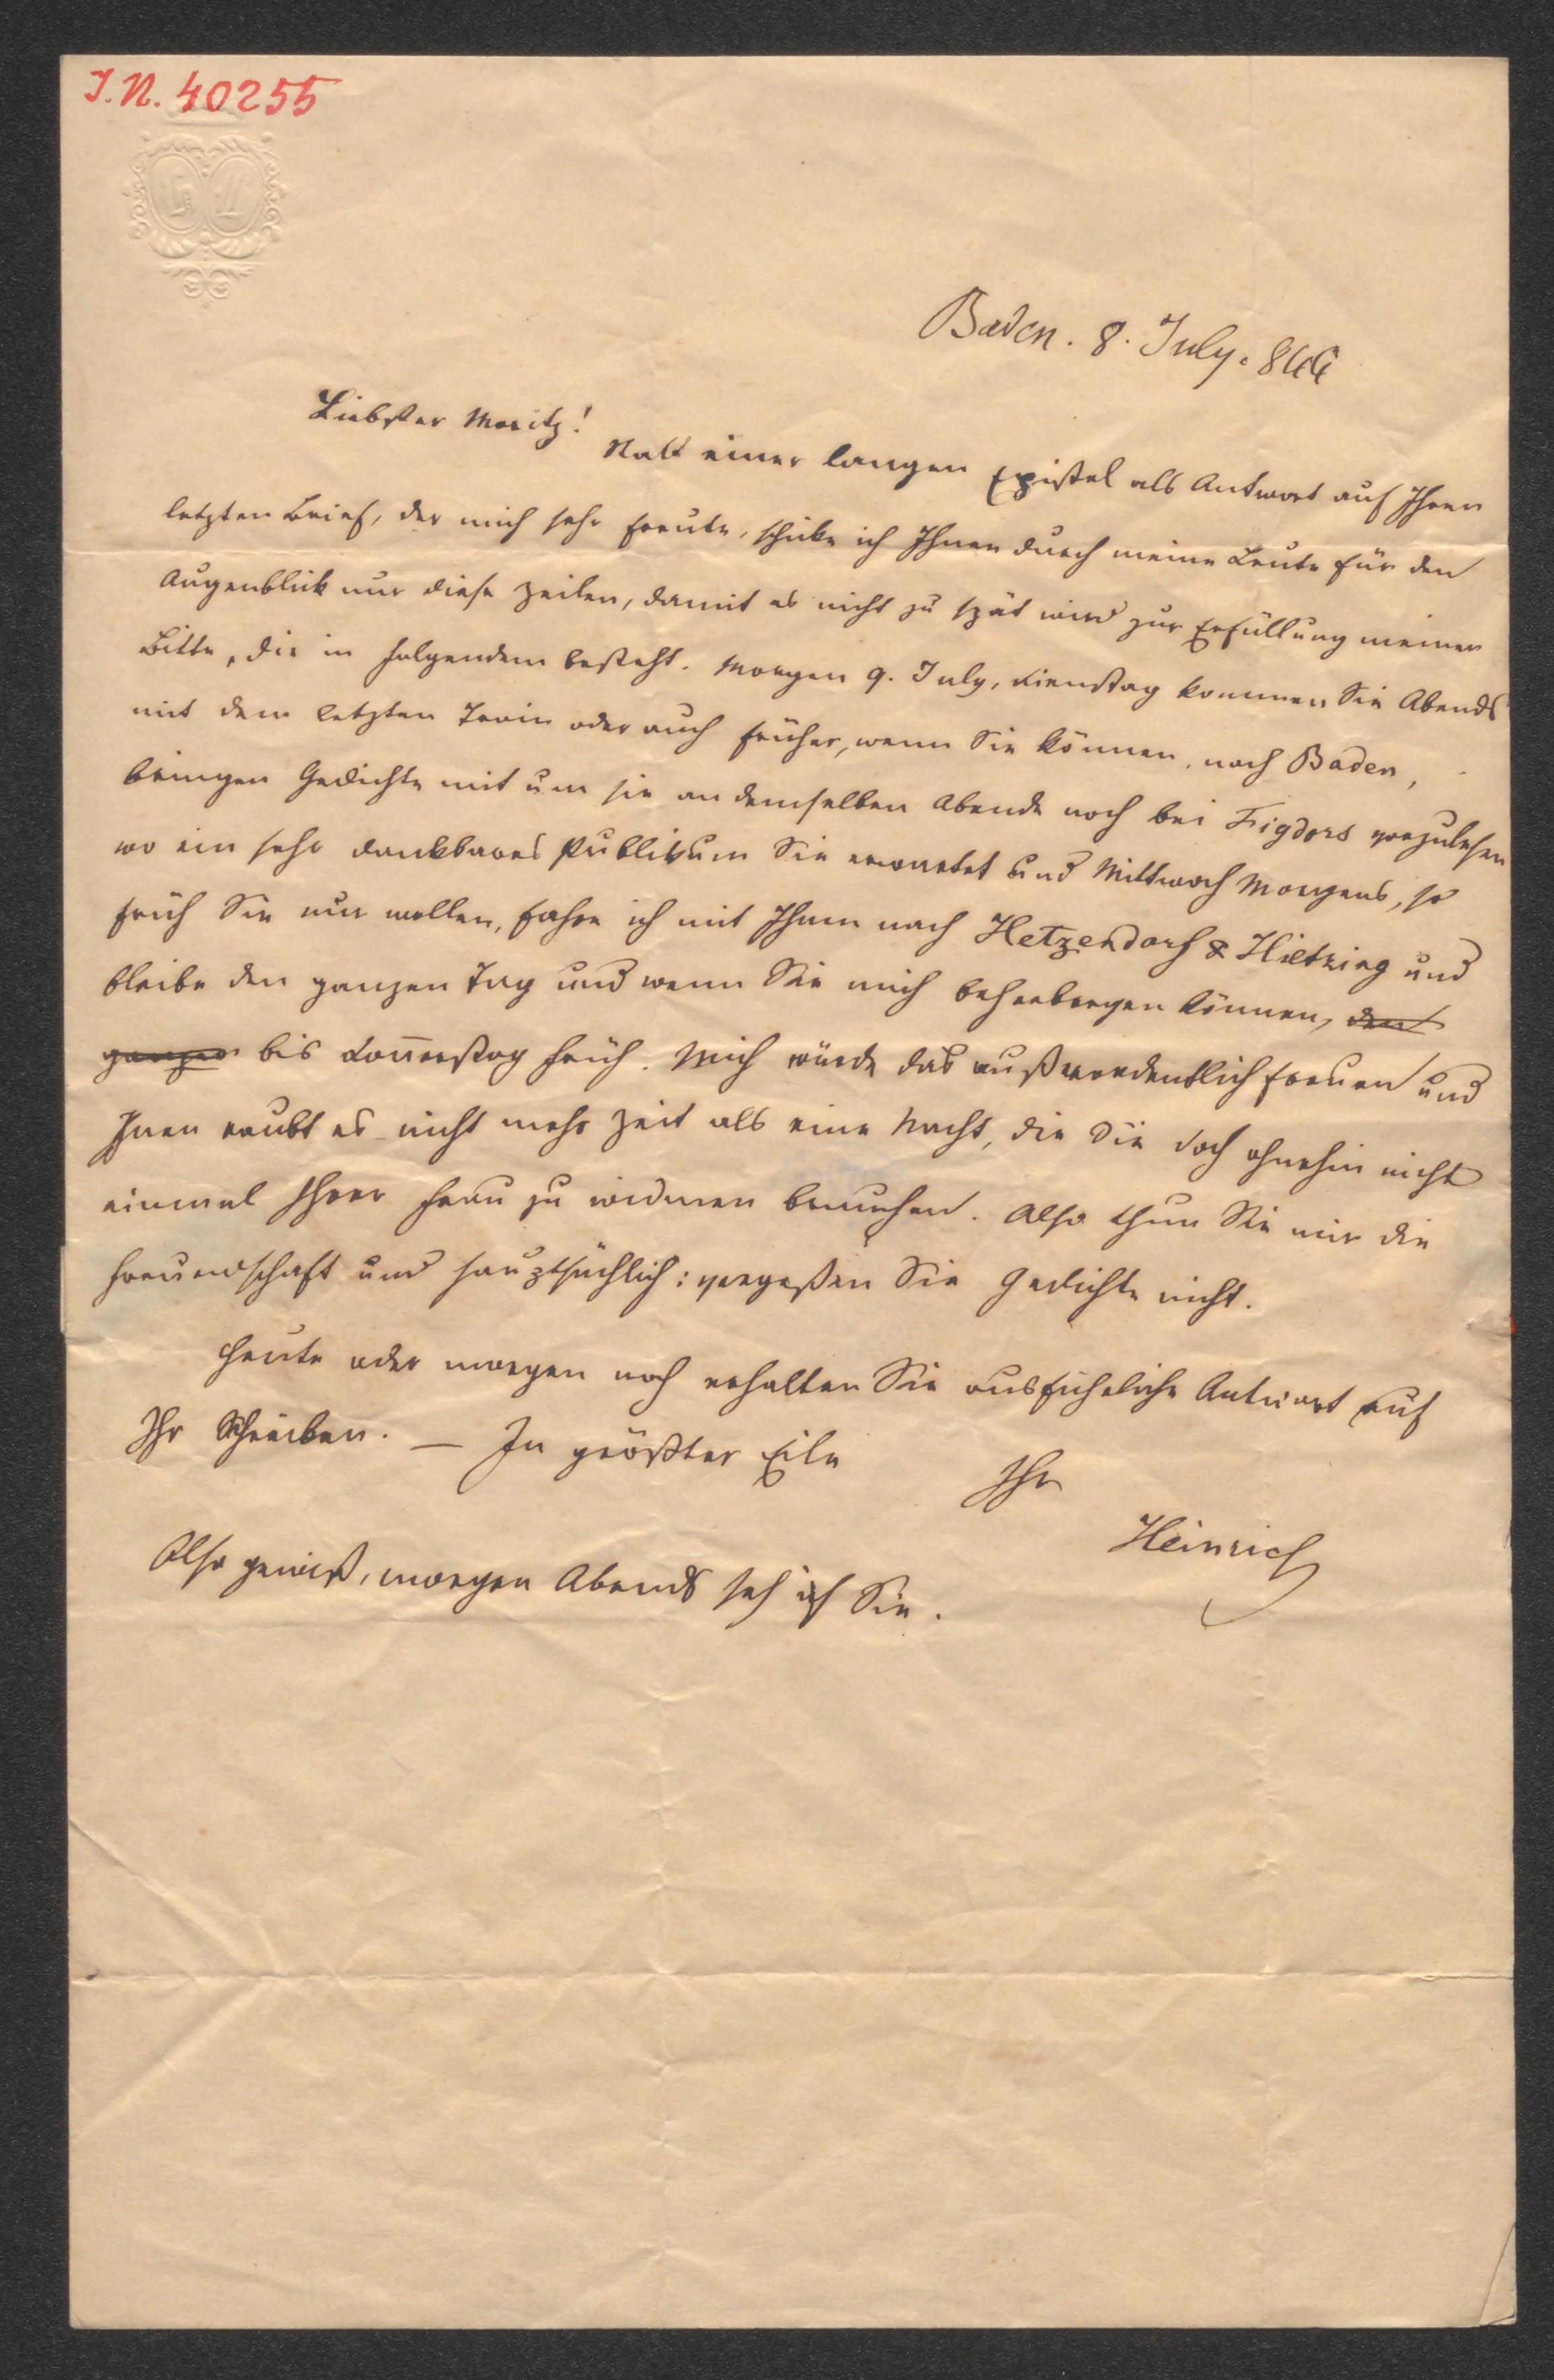 I.N. 40255
Baden. 8. July. 844
Liebster Moritz!
Statt einer langen Epistel als Antwort auf Ihren
letzten Brief, der mich sehr freute, schicke ich Ihnen durch meine Leute für den
Augenblick nur diese Zeilen, damit es nicht zu spät wird zur Erfüllung meiner
Bitte, die in folgendem besteht. Morgen 9. July, Dienstag kommen Sie Abends
mit dem letzten Train oder auch früher, wenn Sie können, nach Baden,
bringen Gedichte mit um sie an demselben Abende noch bei Figdors vorzulesen
wo ein sehr dankbares Publikum Sie erwartet und Mittwoch Morgens, so
früh Sie nur wollen, fahre ich mit Ihnen nach Hetzendorf & Hietzing und
bleibe den ganzen Tag und wenn Sie mich beherbergen können, den
ganzen bis Donnerstag früh. Mich würde das außerordentlich freuen und
Ihnen raubt es nicht mehr Zeit als eine Nacht, die Sie doch ohnehin nicht
einmal Ihrer Frau zu widmen brauchen. Also thun Sie mir die
Freundschaft und hauptsächlich: vergeßen Sie Gedichte nicht.
Heute oder morgen noch erhalten Sie ausführliche Antwort auf
Ihr Schreiben. — In größter Eile
Ihr
Heinrich
Also gewiß, morgen Abends seh ich Sie.